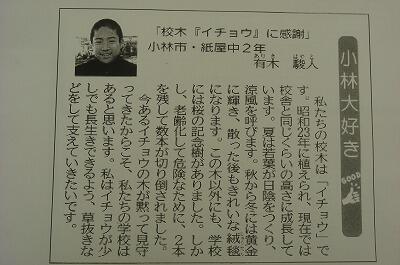 小林大好き
GOOD
「校木『イチョウ』に感謝」
小林市・紙屋中2年
有木 駿人
ありき はやと
私たちの校木は「イチョウ」で
す。昭和23年に植えられ、現在では
校舎と同じくらいの高さに成長して
います。夏は若葉が日陰をつくり、
涼風を呼びます。秋から冬には黄金
に輝き、散った後もきれいな絨毯
になります。この木以外にも、学校
には桜の記念樹がありました。しか
し、老齢化して危険なために、2本
を残して数本が切り倒されました。
今あるイチョウの木が黙って見守
ってきたからこそ、私たちの学校は
あると思います。私はイチョウが少
しでも長生きできるよう、草抜きな
どをして支えていきたいです。